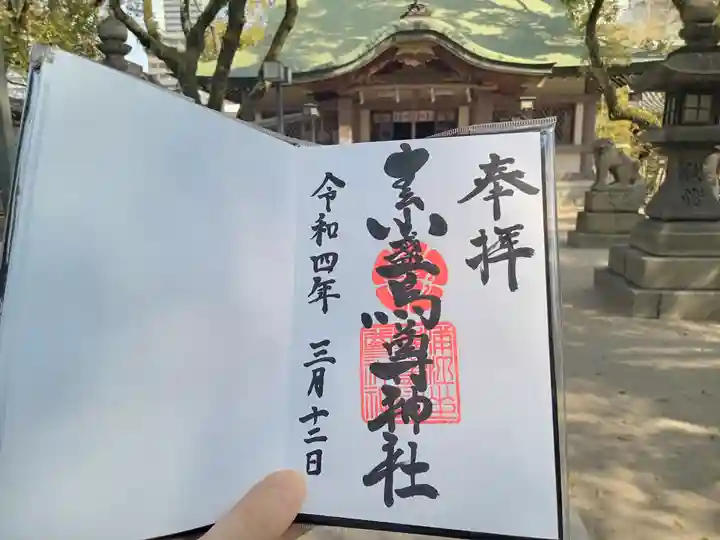 奉拝
素盞烏尊神社
令和四年 三月十二日